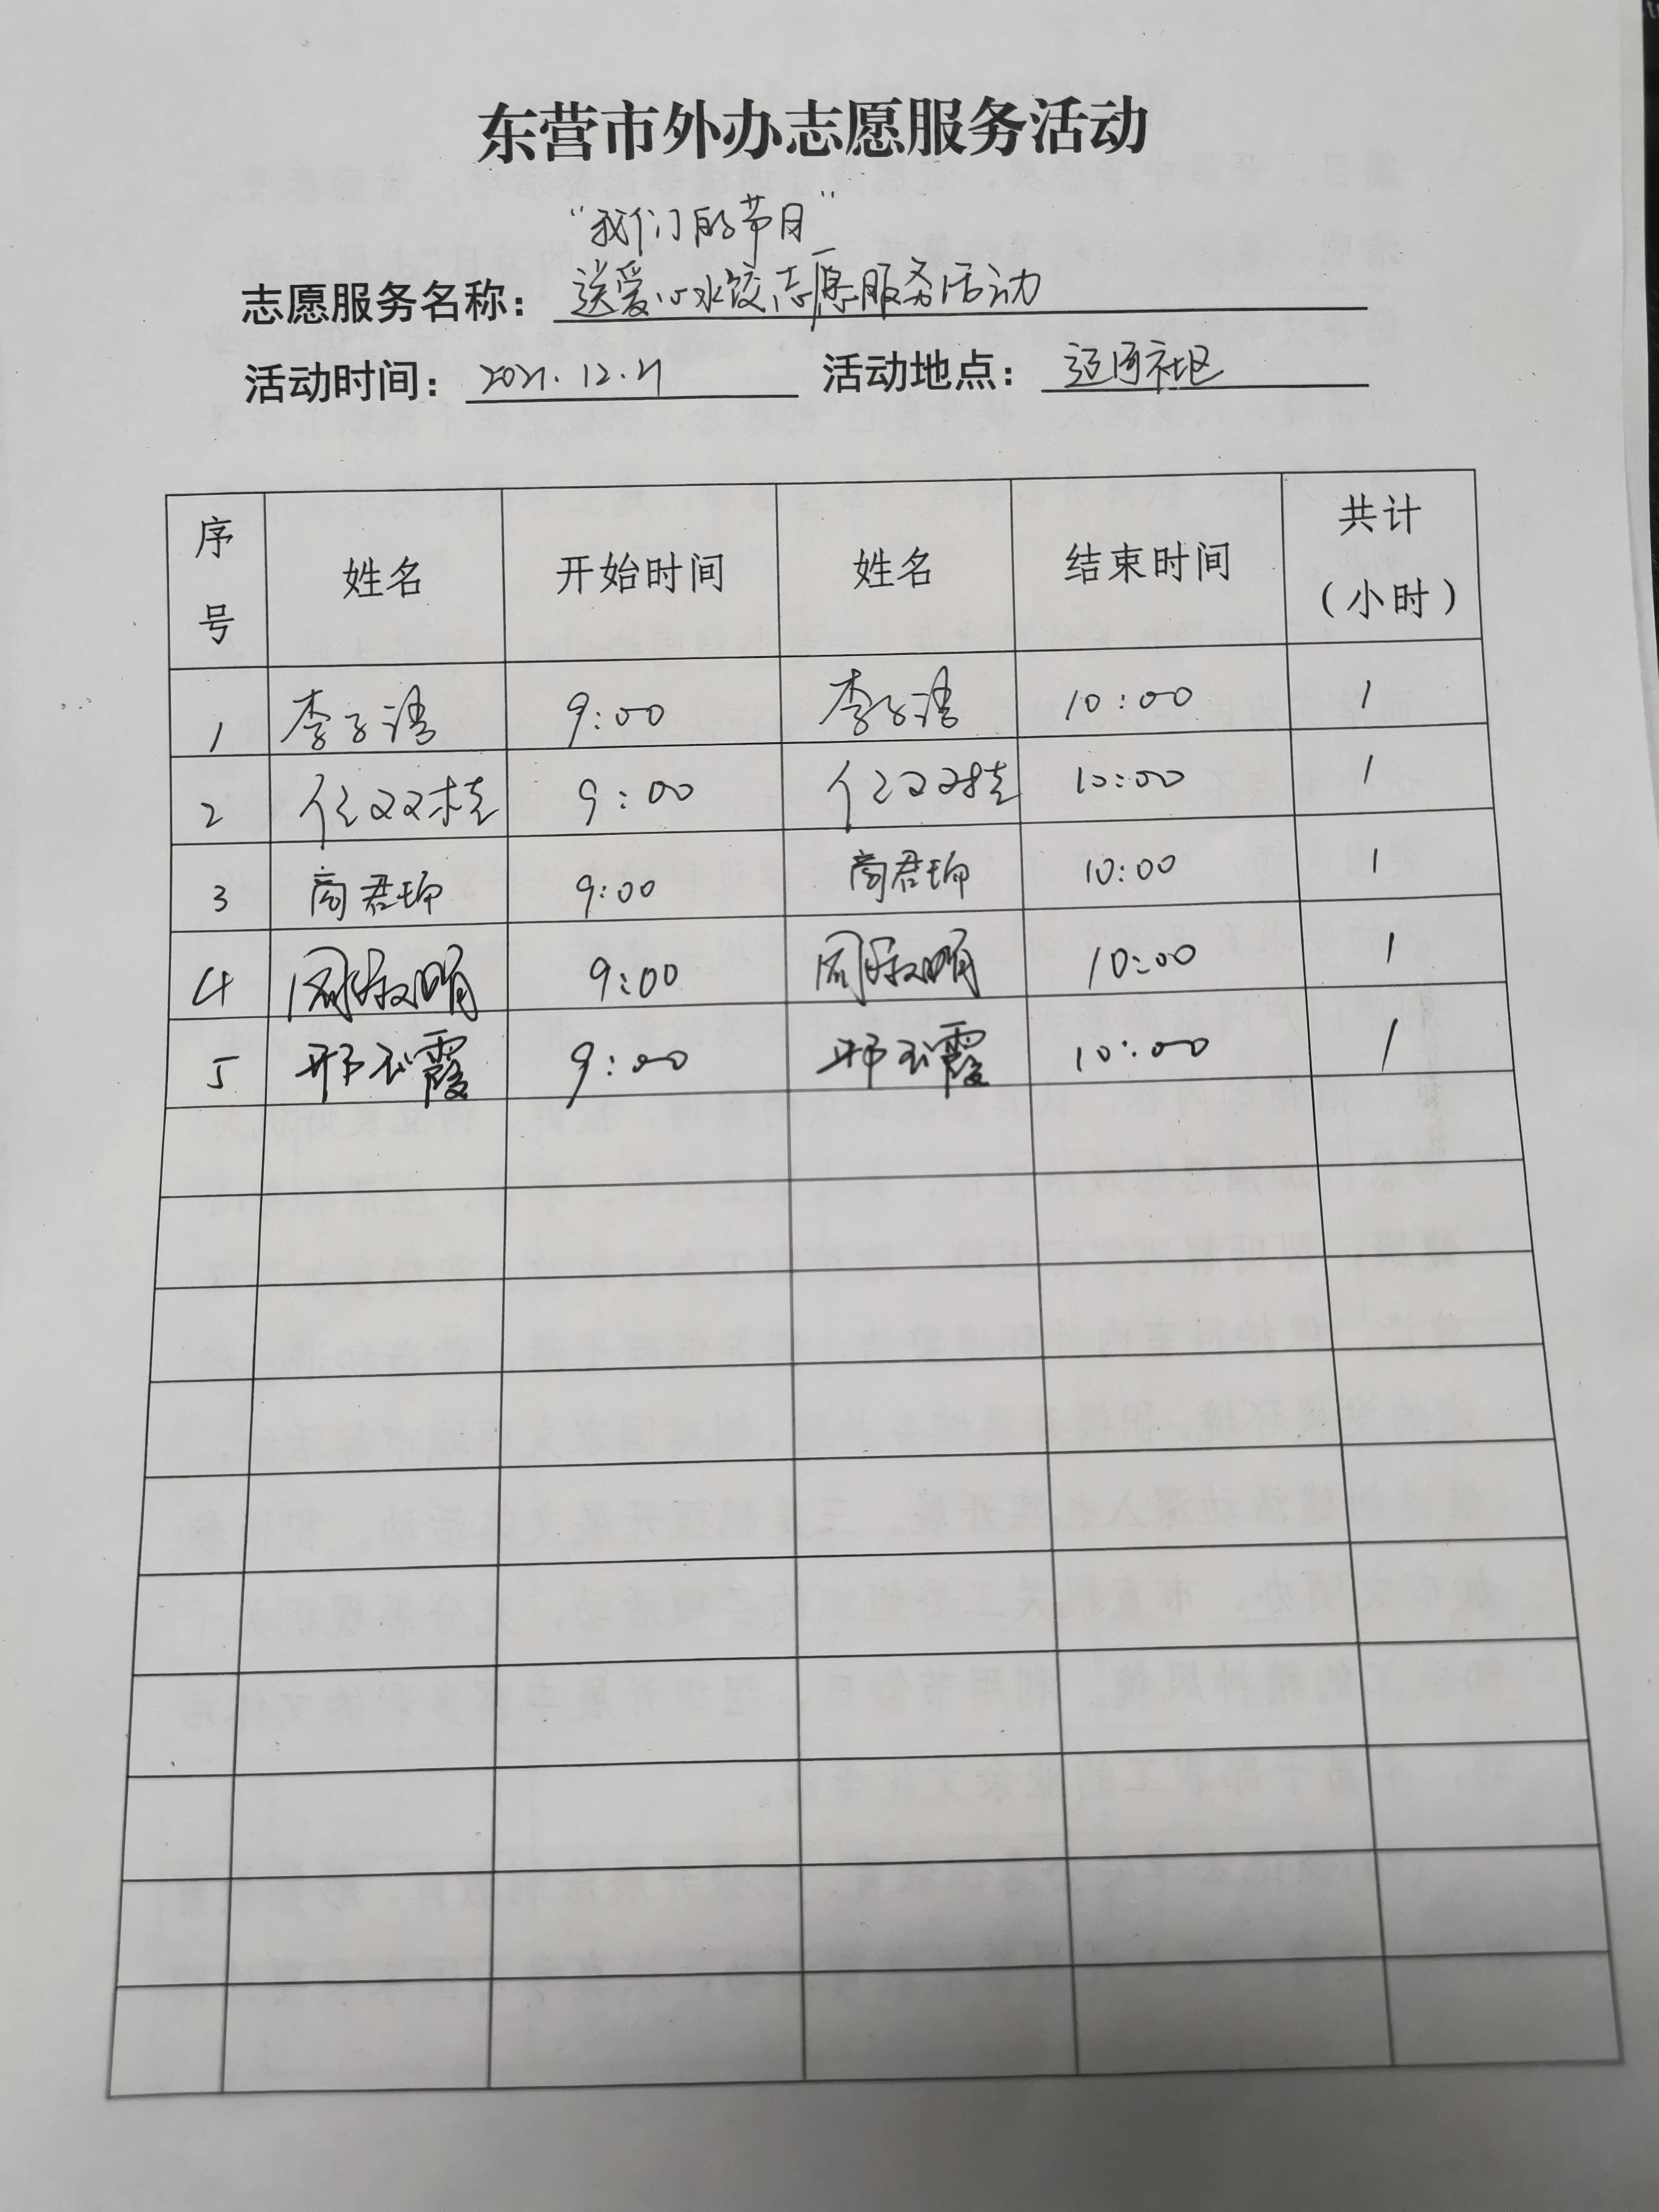 东营市外办志愿服务活动
“我们的节日”
志愿服务名称：送爱心水饺志愿服务活动
活动时间：2021.12.21 活动地点：运河社区
序号 姓名 开始时间 姓名 结束时间 共计（小时）
1 李子涛 9:00 李子涛 10:00 1
2 任双双 9:00 任双双 10:00 1
3 商君珊 9:00 商君珊 10:00 1
4 周淑娟 9:00 周淑娟 10:00 1
5 邢玉霞 9:00 邢玉霞 10:00 1